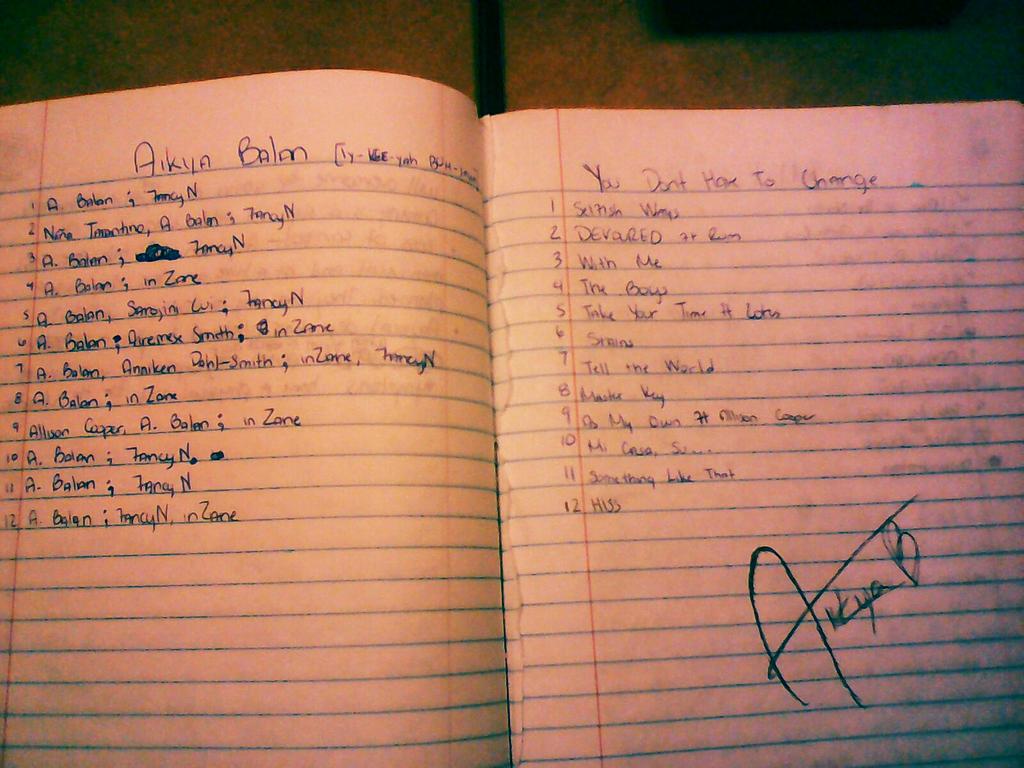 Aikya Balan [Iy-KEE-yah
1 A. Balan ; FancyN
2 Nina Tarantino, A Balan ; FancyN
3 A. Balan ; FancyN
4 A. Balan ; in Zane
5 A Balan, Sarojini Lui ; FancyN
6 A. Balan ; Airemese Smith ; in Zane
7 A. Balan, Anniken Dahl-Smith ; in Zane, FancyN
8 A. Balan ; in Zane
9 Allison Cooper, A. Balan ; in Zane
10 A. Balan ; FancyN.
11 A. Balan ; FancyN
12 A. Balan ; FancyN, in Zane
You Dont Have To Change
1 Selfish Ways
2 DEVOURED ft Rum
3 With Me
4 The Boys
5 Take Your Time ft Lotus
6 Stains
7 Tell the World
8 Master Key
9 As My Own ft Allison Cooper
10 Mi Casa, Su...
11 Something Like That
12 HISS
Aikya B